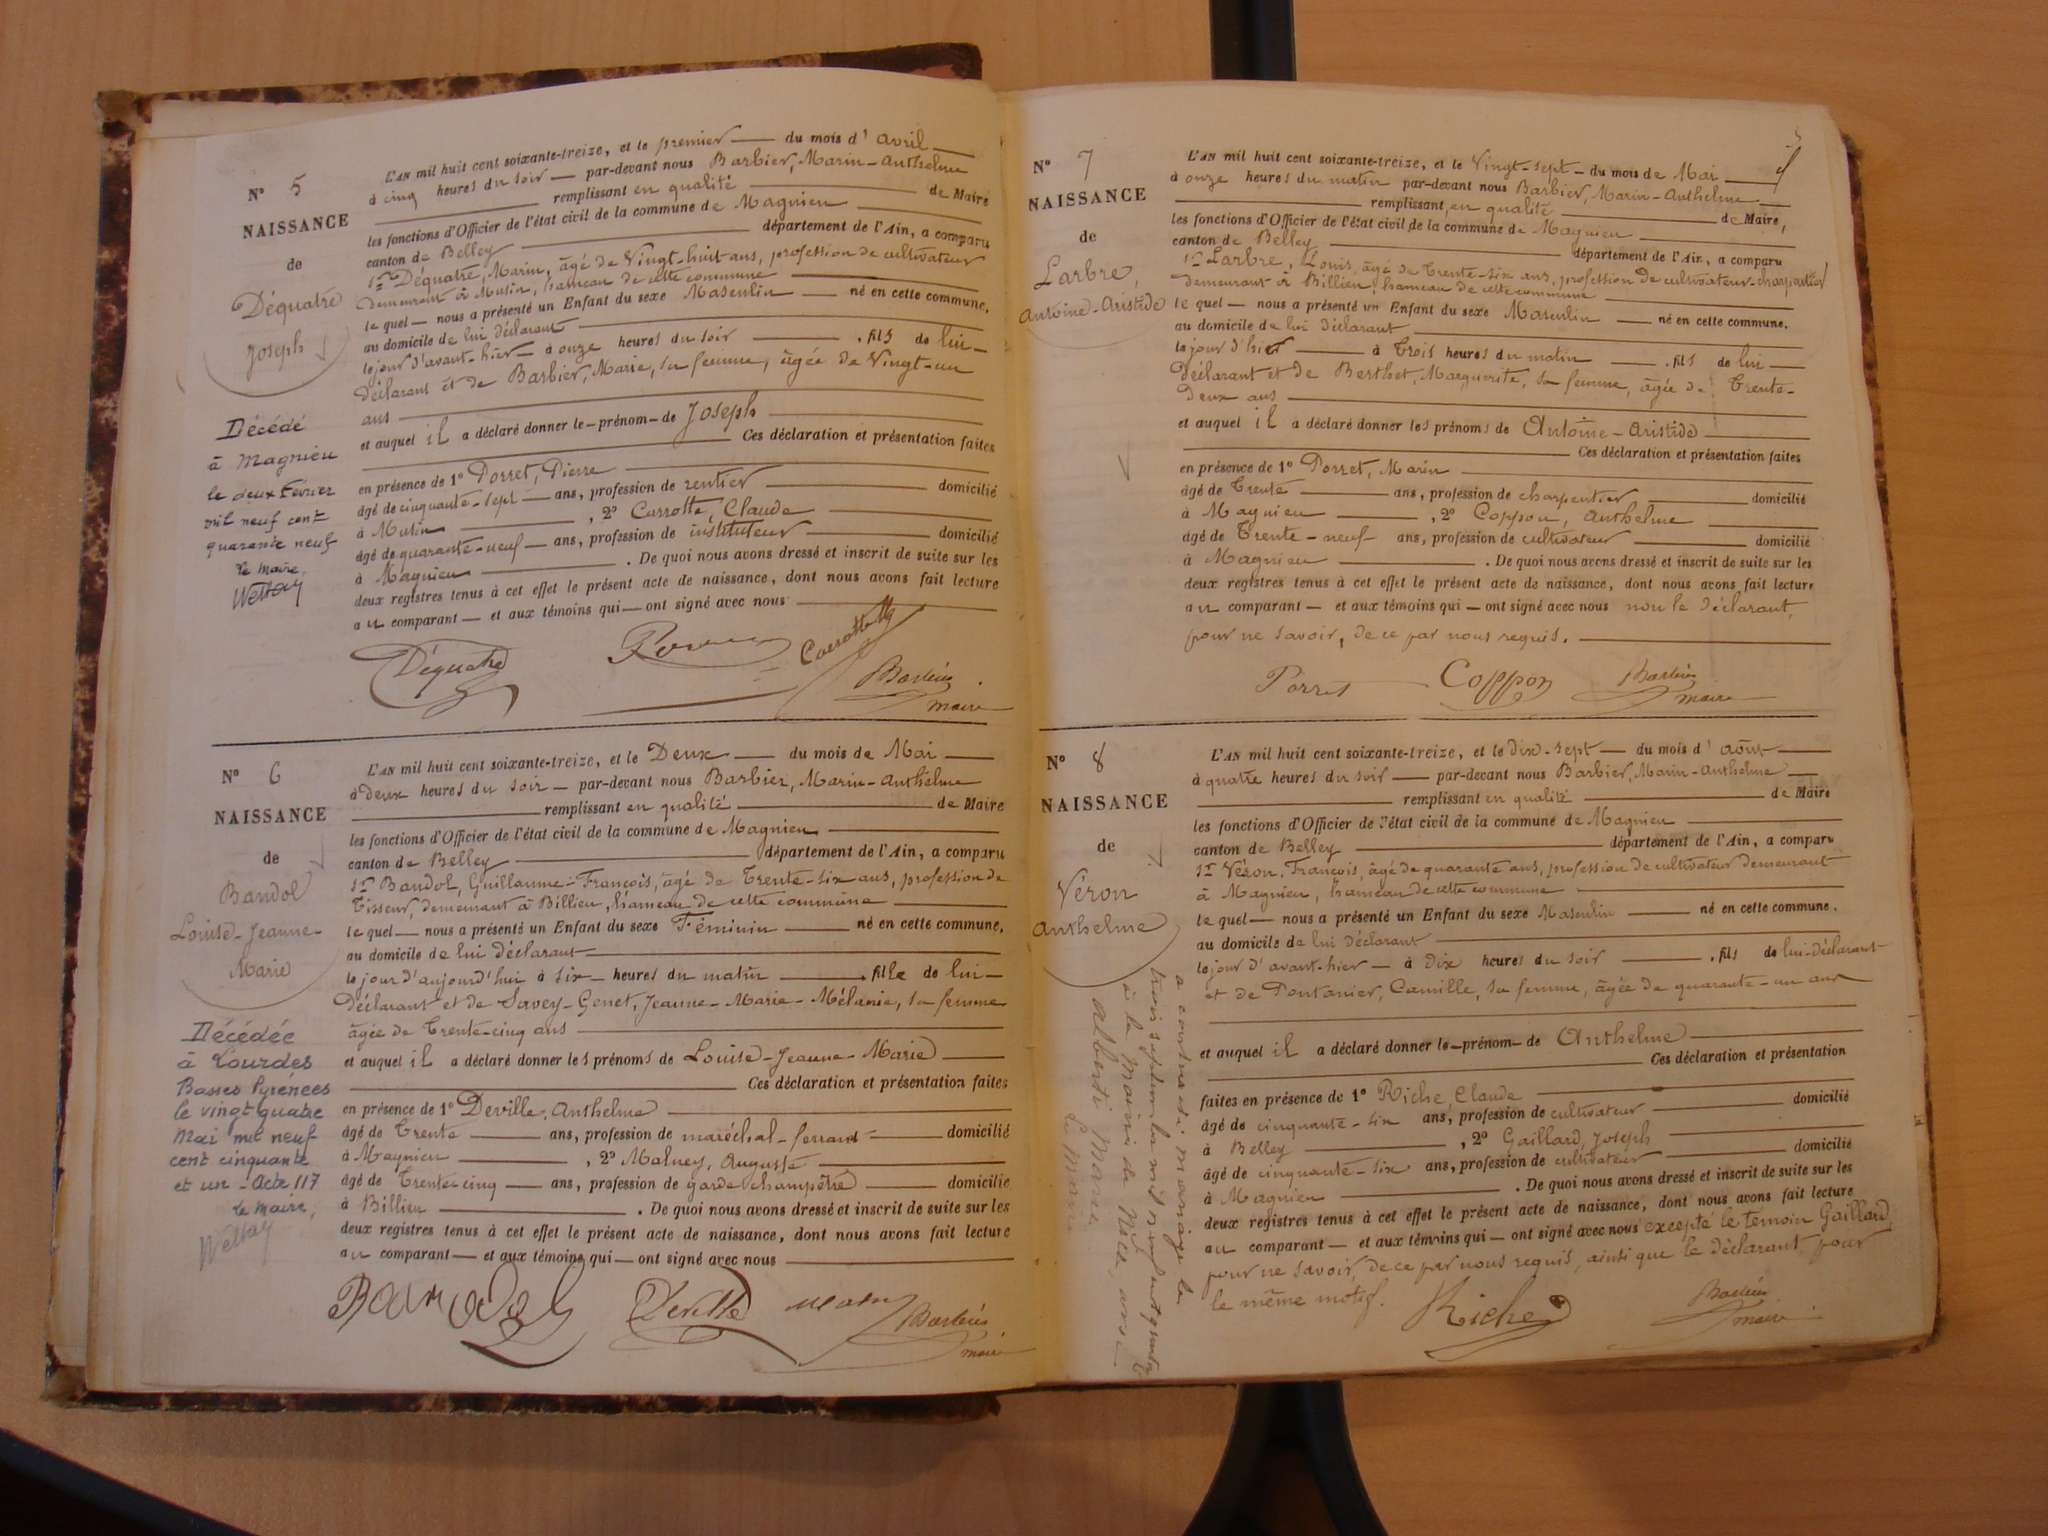 N° 5
NAISSANCE
de
Déquatre
Joseph
Décédé
à Magnieu
le deux Février
mil neuf cent
quarante neuf
le maire,
L'AN mil huit cent soixante-treize, et le premier du mois d' avril
à cinq heures du soir par-devant nous Barbier, Marin-Anthelme
remplissant en qualité de Maire
les fonctions d'Officier de l'état civil de la commune de Magnieu
canton de Belley département de l'Ain, a comparu
Sr Déquatre, Marin, âgé de Vingt-huit ans, profession de cultivateur
demeurant à Mutin, hameau de cette commune
le quel nous a présenté un Enfant du sexe Masculin né en cette commune,
au domicile de lui déclarant
le jour d'avant-hier à onze heures du soir , fils de lui
déclarant et de Barbier, Marie, sa femme, âgée de Vingt-un
ans
et auquel il a déclaré donner le prénom de Joseph
Ces déclaration et présentation faites
en présence de 1° Porret, Pierre
âgé de cinquante-sept ans, profession de rentier domicilié
à Mutin , 2° Carrotte, Claude
âgé de quarante-neuf ans, profession de instituteur domicilié
à Magnieu . De quoi nous avons dressé et inscrit de suite sur les
deux registres tenus à cet effet le présent acte de naissance, dont nous avons fait lecture
au comparant et aux témoins qui ont signé avec nous
Déquatre Carrotte
Barbier
maire
N° 6
NAISSANCE
de
Bandol
Louise-Jeanne-
Marie
Décédée
à Lourdes
Basses Pyrénées
le vingt quatre
Mai mil neuf
cent cinquante
et un - Acte 117
le maire,
L'AN mil huit cent soixante-treize, et le Deux du mois de Mai
à deux heures du soir par-devant nous Barbier, Marin-Anthelme
remplissant en qualité de Maire
les fonctions d'Officier de l'état civil de la commune de Magnieu
canton de Belley département de l'Ain, a comparu
Sr Bandol, Guillaume-François, âgé de Trente-six ans, profession de
Tisseur, demeurant à Billieu, hameau de cette commune
le quel nous a présenté un Enfant du sexe Féminin né en cette commune,
au domicile de lui déclarant
le jour d'aujourd'hui à six heures du matin , fille de lui
déclarant et de Savey-Genet, Jeanne-Marie-Mélanie, sa femme
âgée de Trente-cinq ans
et auquel il a déclaré donner les prénoms de Louise-Jeanne-Marie
Ces déclaration et présentation faites
en présence de 1° Deville, Anthelme
âgé de Trente ans, profession de maréchal-ferrant domicilié
à Magnieu , 2° Malney, Auguste
âgé de Trente-cinq ans, profession de garde champêtre domicilié
à Billieu . De quoi nous avons dressé et inscrit de suite sur les
deux registres tenus à cet effet le présent acte de naissance, dont nous avons fait lecture
au comparant et aux témoins qui ont signé avec nous
Bandol Deville Barbier
maire
N° 7
NAISSANCE
de
Larbre,
Antoine-Aristide
L'AN mil huit cent soixante-treize, et le Vingt-sept du mois de Mai
à onze heures du matin par-devant nous Barbier, Marin-Anthelme
remplissant en qualité de Maire,
les fonctions d'Officier de l'état civil de la commune de Magnieu
canton de Belley département de l'Ain, a comparu
Sr Larbre, Louis, âgé de Trente-six ans, profession de cultivateur-charpentier
demeurant à Billieu, hameau de cette commune
le quel nous a présenté un Enfant du sexe Masculin né en cette commune.
au domicile de lui déclarant
le jour d'hier à Trois heures du matin , fils de lui
déclarant et de Berthet, Marguerite, sa femme, âgée de Trente-
deux ans
et auquel il a déclaré donner les prénoms de Antoine-Aristide
Ces déclaration et présentation faites
en présence de 1° Porret, Marin
âgé de Trente ans, profession de charpentier domicilié
à Magnieu , 2° Coppon, Anthelme
âgé de Trente-neuf ans, profession de cultivateur domicilié
à Magnieu . De quoi nous avons dressé et inscrit de suite sur les
deux registres tenus à cet effet le présent acte de naissance, dont nous avons fait lecture
au comparant et aux témoins qui ont signé avec nous non le déclarant,
pour ne savoir, de ce par nous requis.
Porret Coppon Barbier
maire
N° 8
NAISSANCE
de
Véron
Anthelme
a contracté mariage le
trois septembre mil neuf cent quatre
à la Mairie de Nice, avec
Alberti Marie
Le Maire
L'AN mil huit cent soixante-treize, et le dix-sept du mois d' août
à quatre heures du soir par-devant nous Barbier, Marin-Anthelme
remplissant en qualité de Maire
les fonctions d'Officier de l'état civil de la commune de Magnieu
canton de Belley département de l'Ain, a comparu
Sr Véron, François, âgé de quarante ans, profession de cultivateur demeurant
à Magnieu, hameau de cette commune
le quel nous a présenté un Enfant du sexe Masculin né en cette commune.
au domicile de lui déclarant
le jour d'avant-hier à dix heures du soir , fils de lui-déclarant
et de Pontanier, Camille, sa femme, âgée de quarante-un ans
et auquel il a déclaré donner le prénom de Anthelme
Ces déclaration et présentation
faites en présence de 1° Riche, Claude
âgé de cinquante-six ans, profession de cultivateur domicilié
à Belley , 2° Gaillard, Joseph
âgé de cinquante-six ans, profession de cultivateur domicilié
à Magnieu . De quoi nous avons dressé et inscrit de suite sur les
deux registres tenus à cet effet le présent acte de naissance, dont nous avons fait lecture
au comparant et aux témoins qui ont signé avec nous excepté le témoin Gaillard,
pour ne savoir, de ce par nous requis, ainsi que le déclarant, pour
le même motif. Riche Barbier
maire